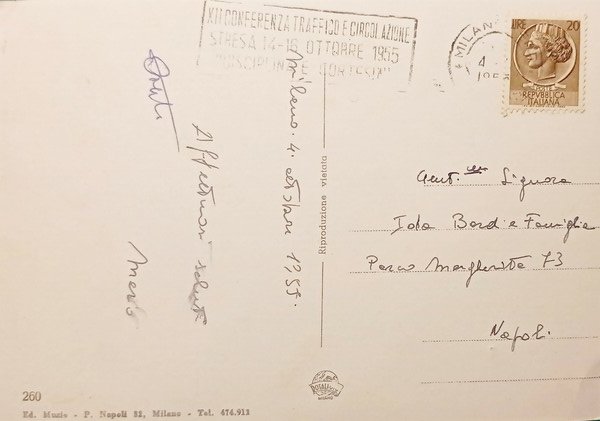 XII CONFERENZA TRAFFICO E CIRCOLAZIONE
STRESA 14-16 OTTOBRE 1955
"DISCIPLINA E CORTESIA"
MILANO
4
LIRE 20
REPVBBLICA
ITALIANA
Milano. 4. ottobre 1955.
Affettuosi saluti
Riproduzione vietata
Gent. Signora
Ida Bord e Famiglia
Parco Margherita 73
Napoli
ROTALFOTO
MILANO
260
Ed. Muzio - P. Napoli 32, Milano - Tel. 474.911